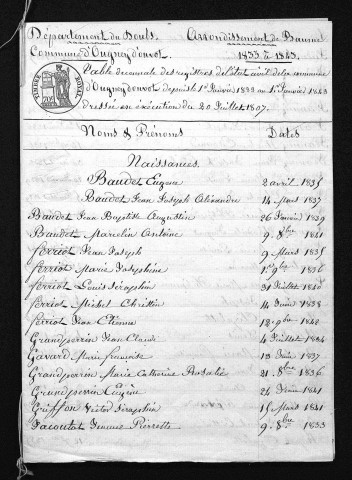 Département du Doubs. Arrondissement de Baume
Commune d'Ougney d'ouvot. 1833 à 1843.
TIMBRE ROYAL
Table décennale des registres de l'état civil de la commune
d'Ougney d'ouvot depuis le 1er Janvier 1833 au 1er Janvier 1843
dressée en exécution du 20 Juillet 1807.
Noms & Prénoms Dates
Naissances.
Baudet Eugène 2 avril 1835
Baudet Jean Joseph Alexandre 14 Mars 1837
Baudet Jean Baptiste Augustin 26 Février 1839
Baudet Marcelin Antoine 9. 8bre 1841
ferriot Jean Joseph 9 Mars 1835
ferriot Marie Josephine 1er 9bre 1836
ferriot Louis Séraphin 31 Juillet 1840
ferriot Michel Christin 14 Juin 1838
ferriot Jean Etienne 18. 9bre 1842
Grandperrin Jean Claude 4 Juillet 1834
Gavard Marie françoise 13 Juin 1837
Grandperrin Marie Catherine Rosalie 21. 8bre 1836
Grandperrin Eugène 26 Juin 1841
Griffon Victor Séraphin 15 Mars 1841
Jacoutot Jeanne Pierrette 9. 8bre 1833